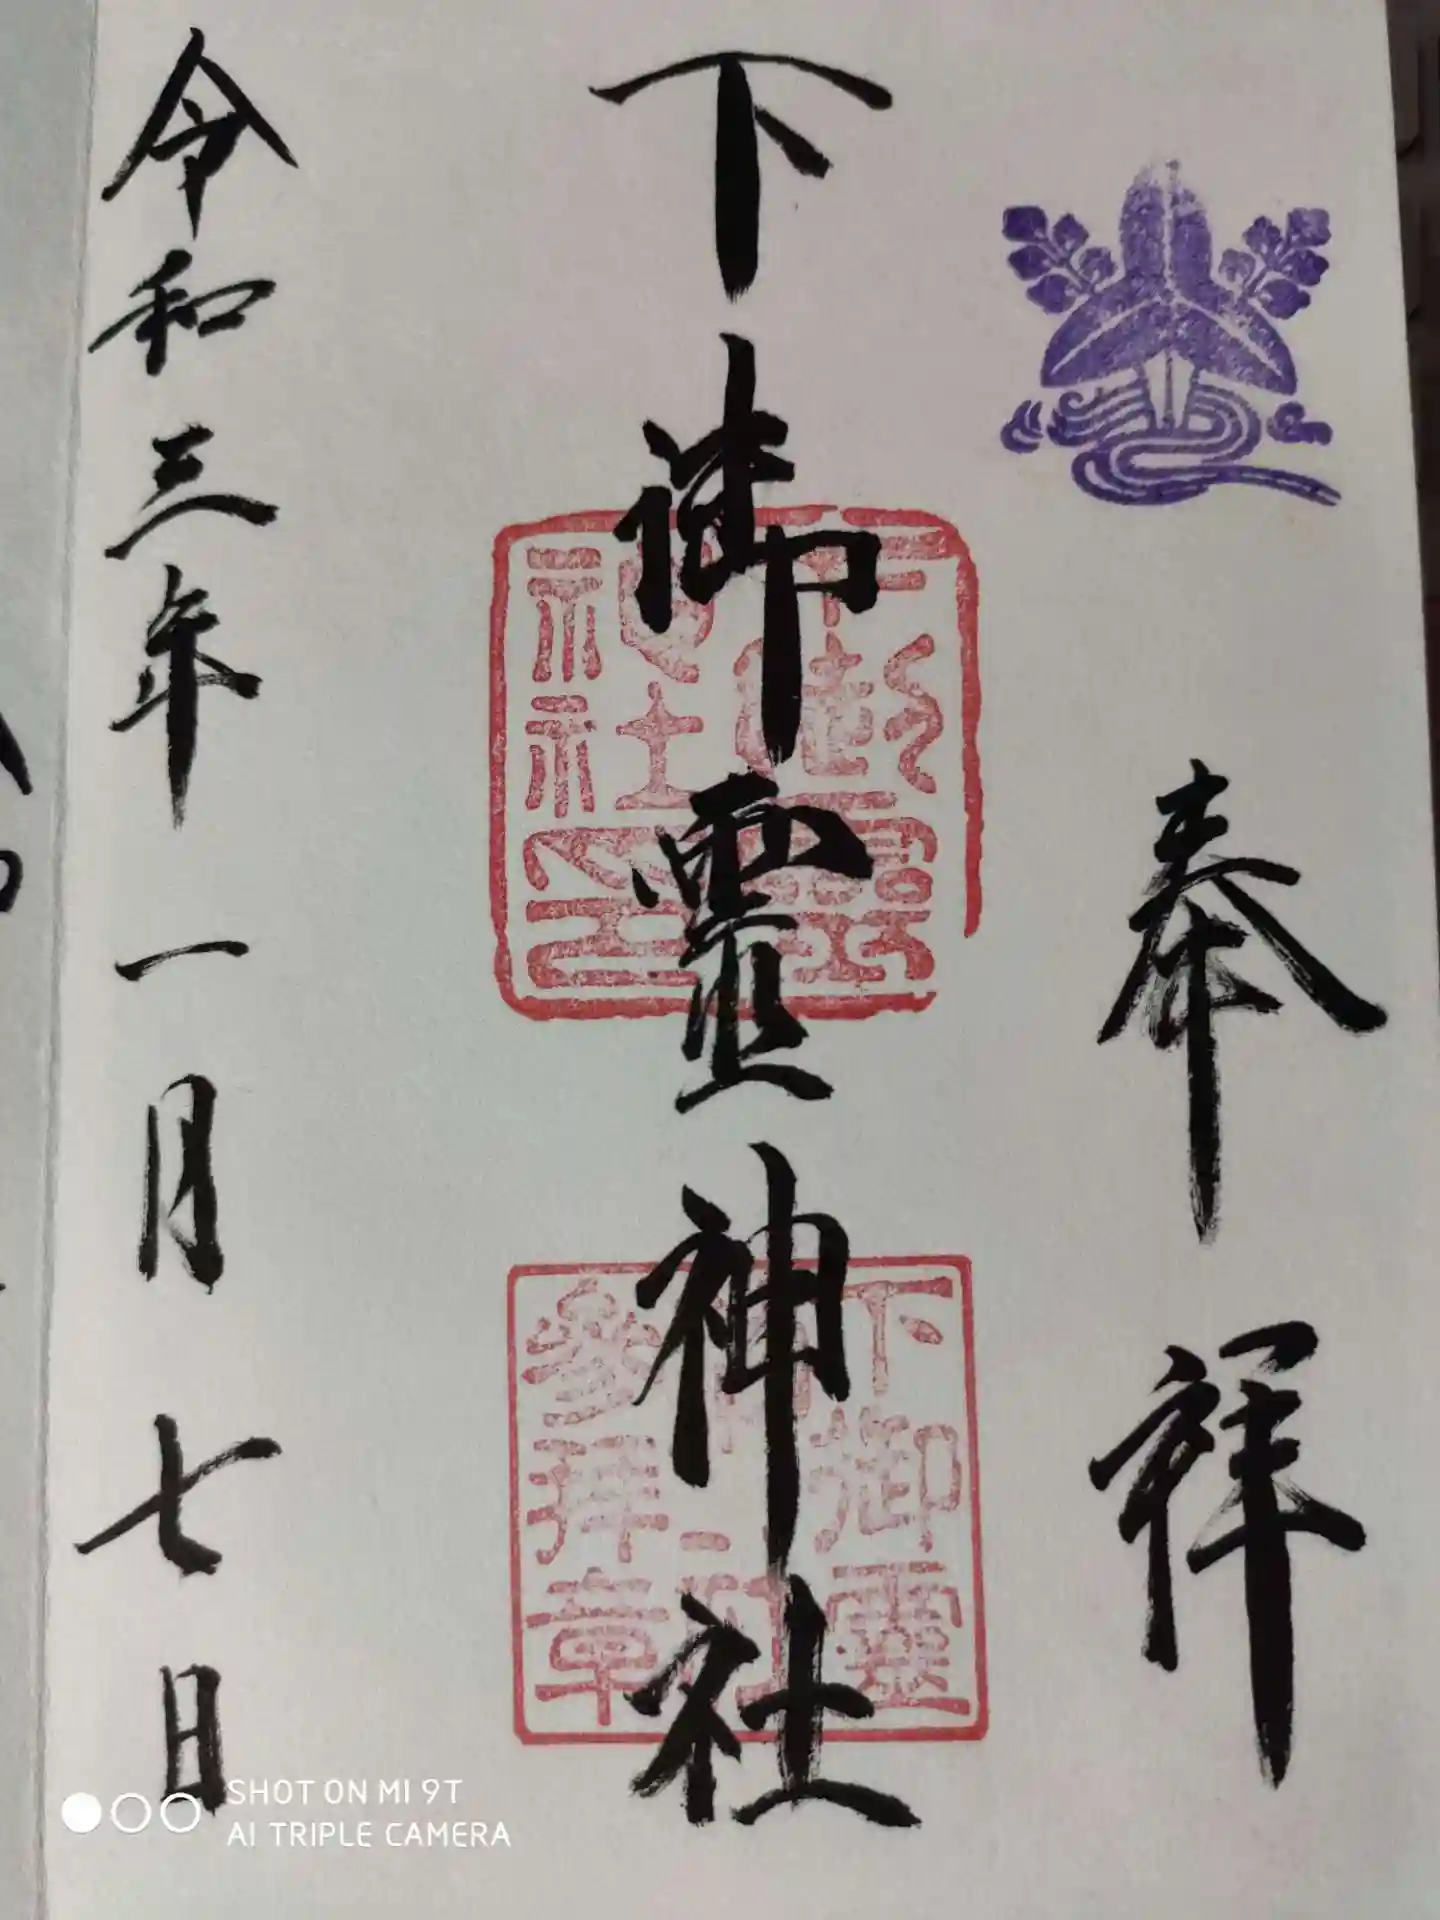 奉祥
下御靈神社
下御靈神社印
下御靈
神社
参拝章
令和三年一月七日
SHOT ON MI 9T
AI TRIPLE CAMERA